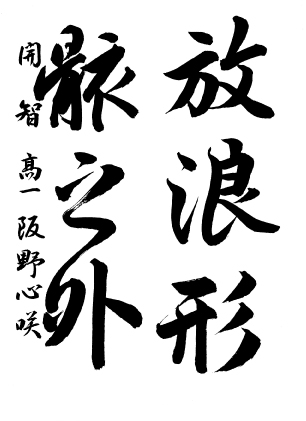 放浪形
骸之外
開智 高一 阪野心咲